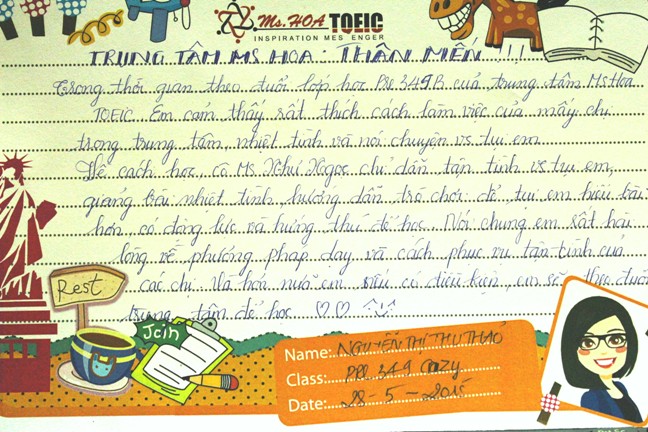 Ms. HOA TOEIC
INSPIRATION MESSENGER
TRUNG TÂM MS HOA THÂN MẾN !!!
Trong thời gian theo đuổi lớp học Pre 349B của trung tâm Ms Hoa
TOEIC. Em cảm thấy rất thích cách làm việc của mấy chị
trong trung tâm, nhiệt tình và nói chuyện vs tụi em
Về cách học, cô Ms Như Ngọc chỉ dẫn tận tình vs tụi em,
giảng bài nhiệt tình, hướng dẫn trò chơi để tụi em hiểu bài
hơn có động lực và hứng thú để học. Nói chung em rất hài
lòng về phương pháp dạy và cách phục vụ tận tình của
các chị. Và hơn nữa em nếu có điều kiện, em sẽ theo đuổi
trung tâm để học ♡♡
Rest
Join
Name: NGUYỄN THỊ THU THẢO
Class: PRE 349 CRAZY
Date: 28 - 5 - 2015